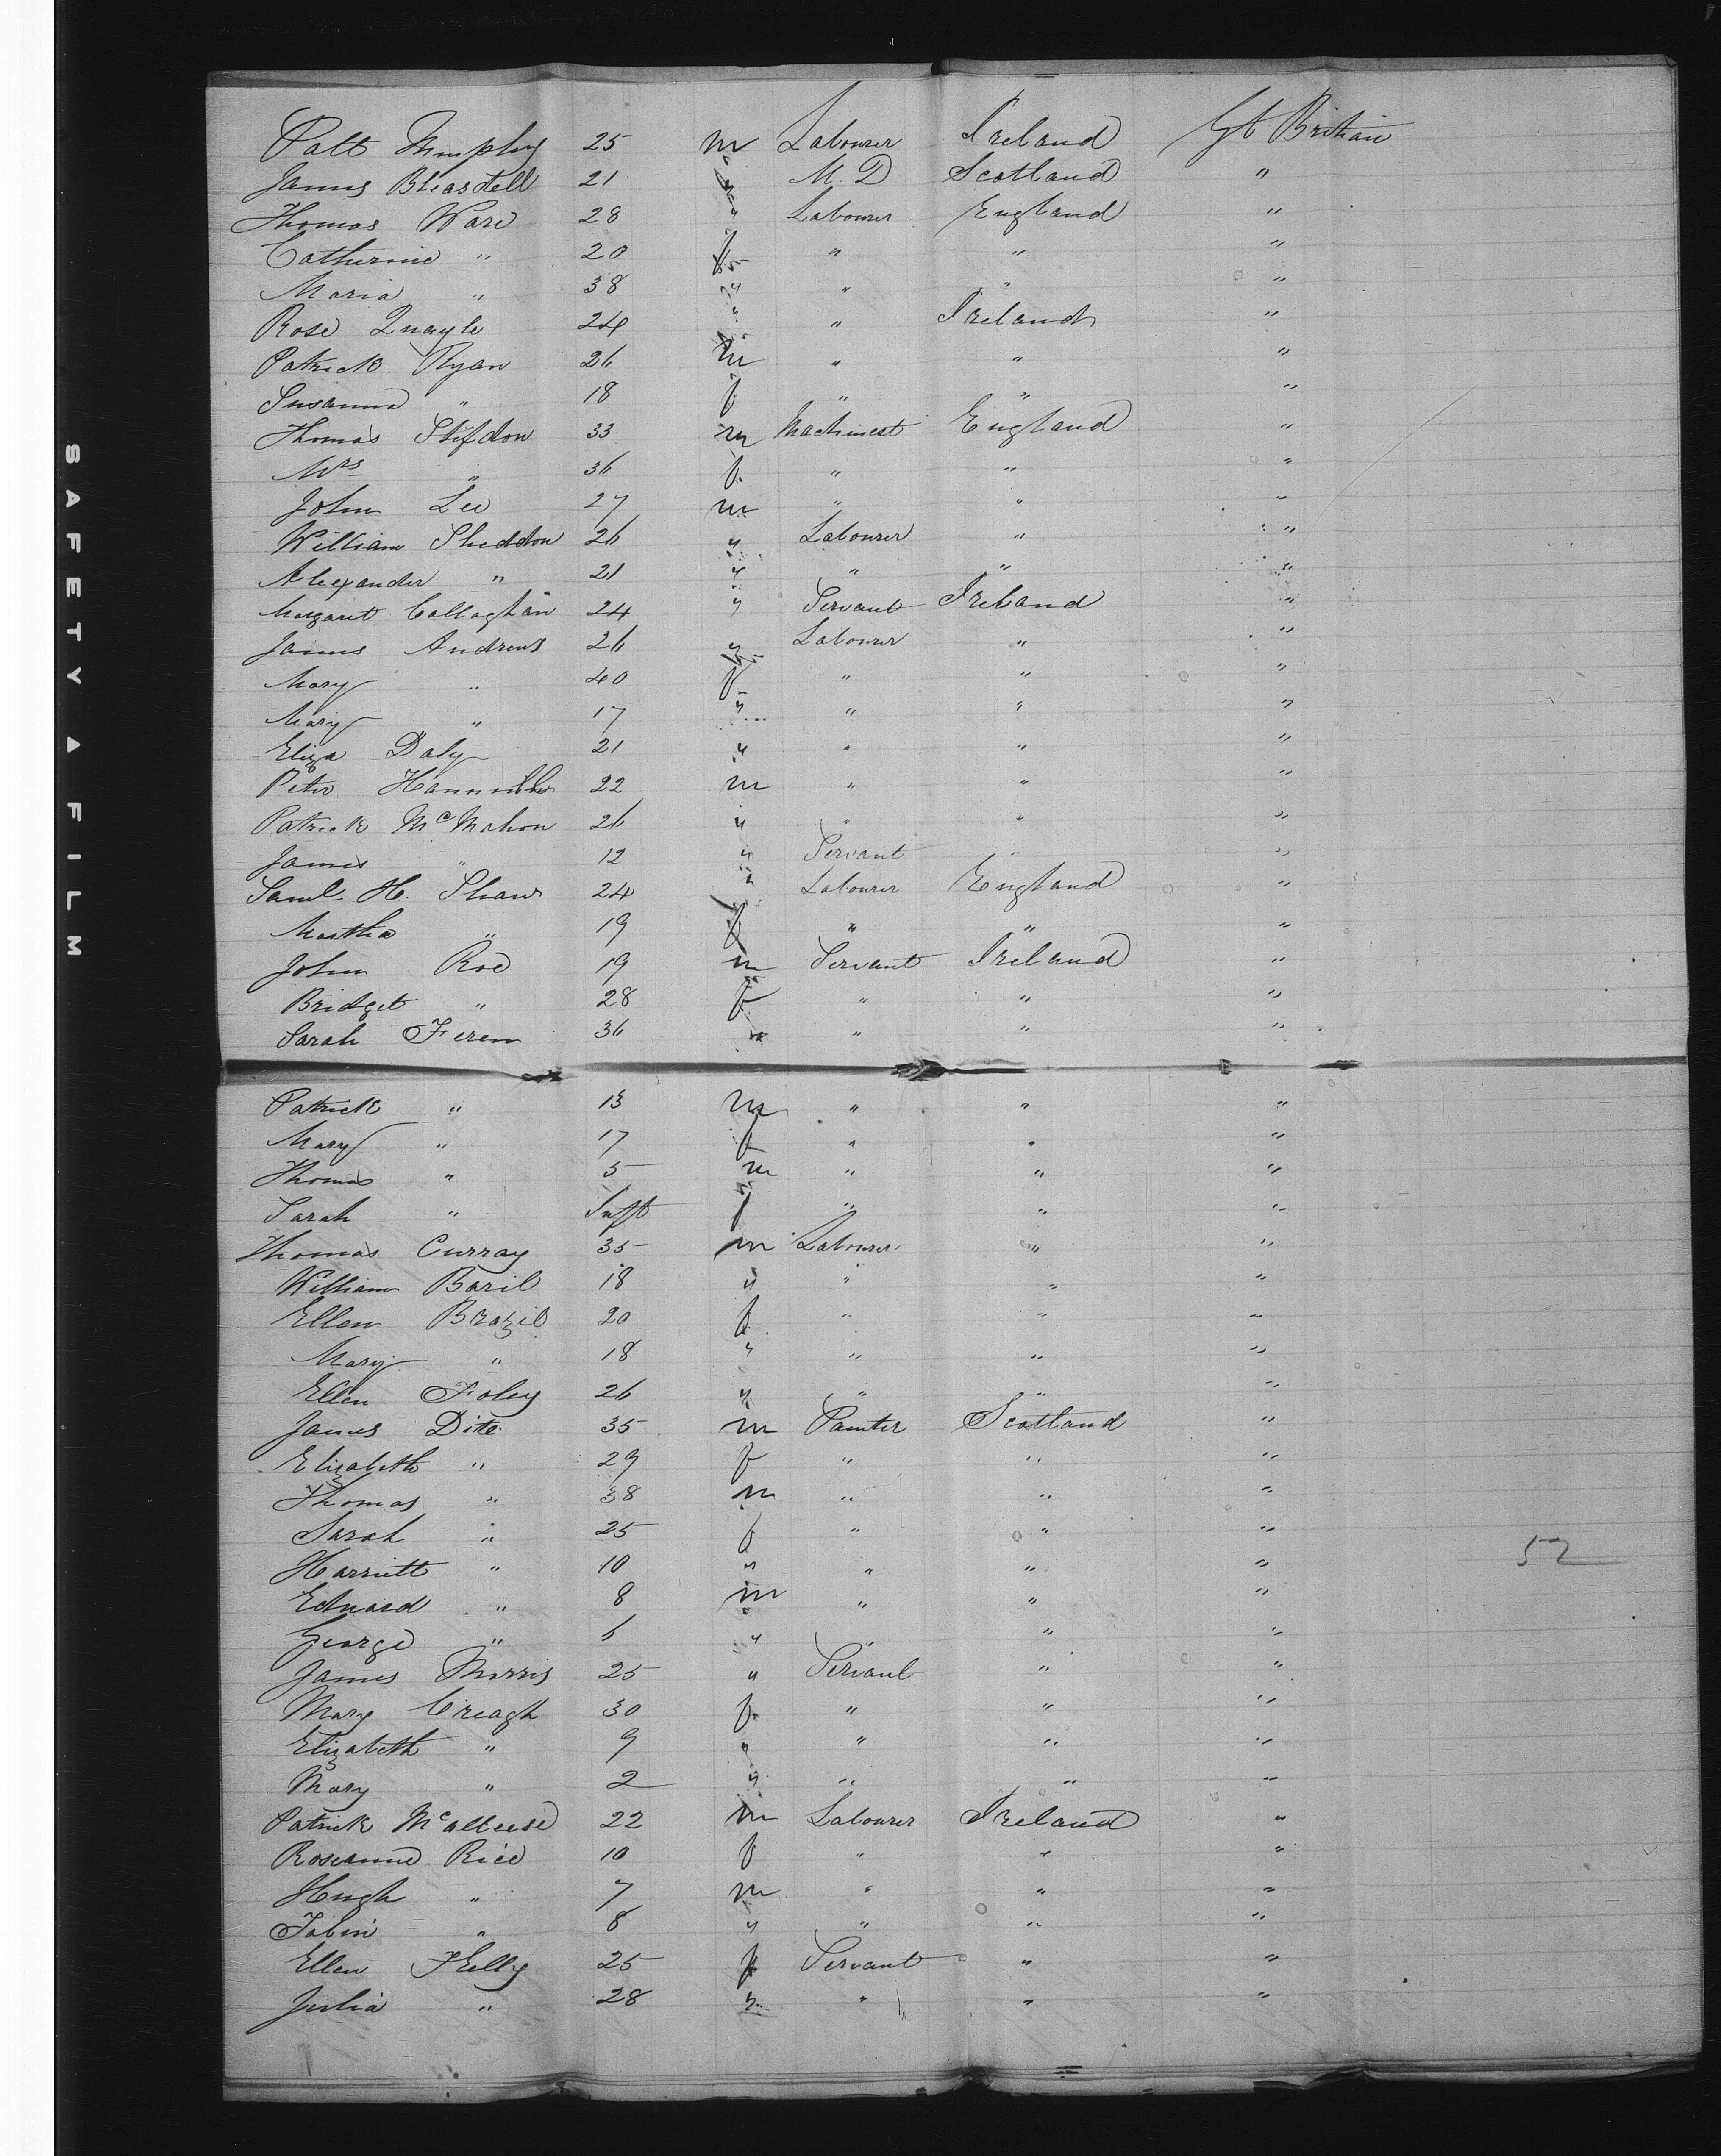 Patt Murphy 25 m Labourer Ireland Gt Britain
James Bleasdell 21 " M.D Scotland "
Thomas Ware 28 " Labourer England "
Catherine " 20 f " " "
Maria " 38 " " " "
Rose Quayle 24 " " Ireland "
Patrick Ryan 26 m " " "
Susanna " 18 f " " "
Thomas Stifdon 33 m Machinest England "
Mrs " 36 f " " "
John Lee 27 m " " "
William Sheddon 26 " Labourer " "
Alexander " 21 " " " "
Margaret Callaghan 24 " Servant Ireland "
James Andrews 26 " Labourer " "
Mary " 40 f " " "
Mary " 17 " " " "
Eliza Daly 21 " " " "
Peter 22 m " " "
Patrick McMahon 26 " " " "
James " 12 " Servant " "
Saml H. Shaw 24 " Labourer England "
Martha " 19 f " " "
John Roe 19 m Servant Ireland "
Bridget " 28 f " " "
Sarah Feren 36 " " " "
Patrick " 13 m " " "
Mary " 17 f " " "
Thomas " 5 m " " "
Sarah " Inft f " " "
Thomas Curray 35 m Labourer " "
William Baril 18 " " " "
Ellen Brazil 20 f " " "
Mary " 18 " " " "
Ellen Foley 26 " " " "
James Dite 35 m Painter Scotland "
Elizabeth " 29 f " " "
Thomas " 38 m " " "
Sarah " 25 f " " "
Harriett " 10 " " " "
Edward " 8 m " " "
George " 6 " " " "
James Morris 25 " Servant " "
Mary Creagh 30 f " " "
Elizabeth " 9 " " " "
Mary " 2 " " " "
Patrick McAlleese 22 m Labourer Ireland "
Roseanne Rice 10 f " " "
Hugh " 7 m " " "
Tobin " 8 " " " "
Ellen Kelly 25 f Servant " "
Julia " 28 " " " "
52
SAFETY ▲ FILM